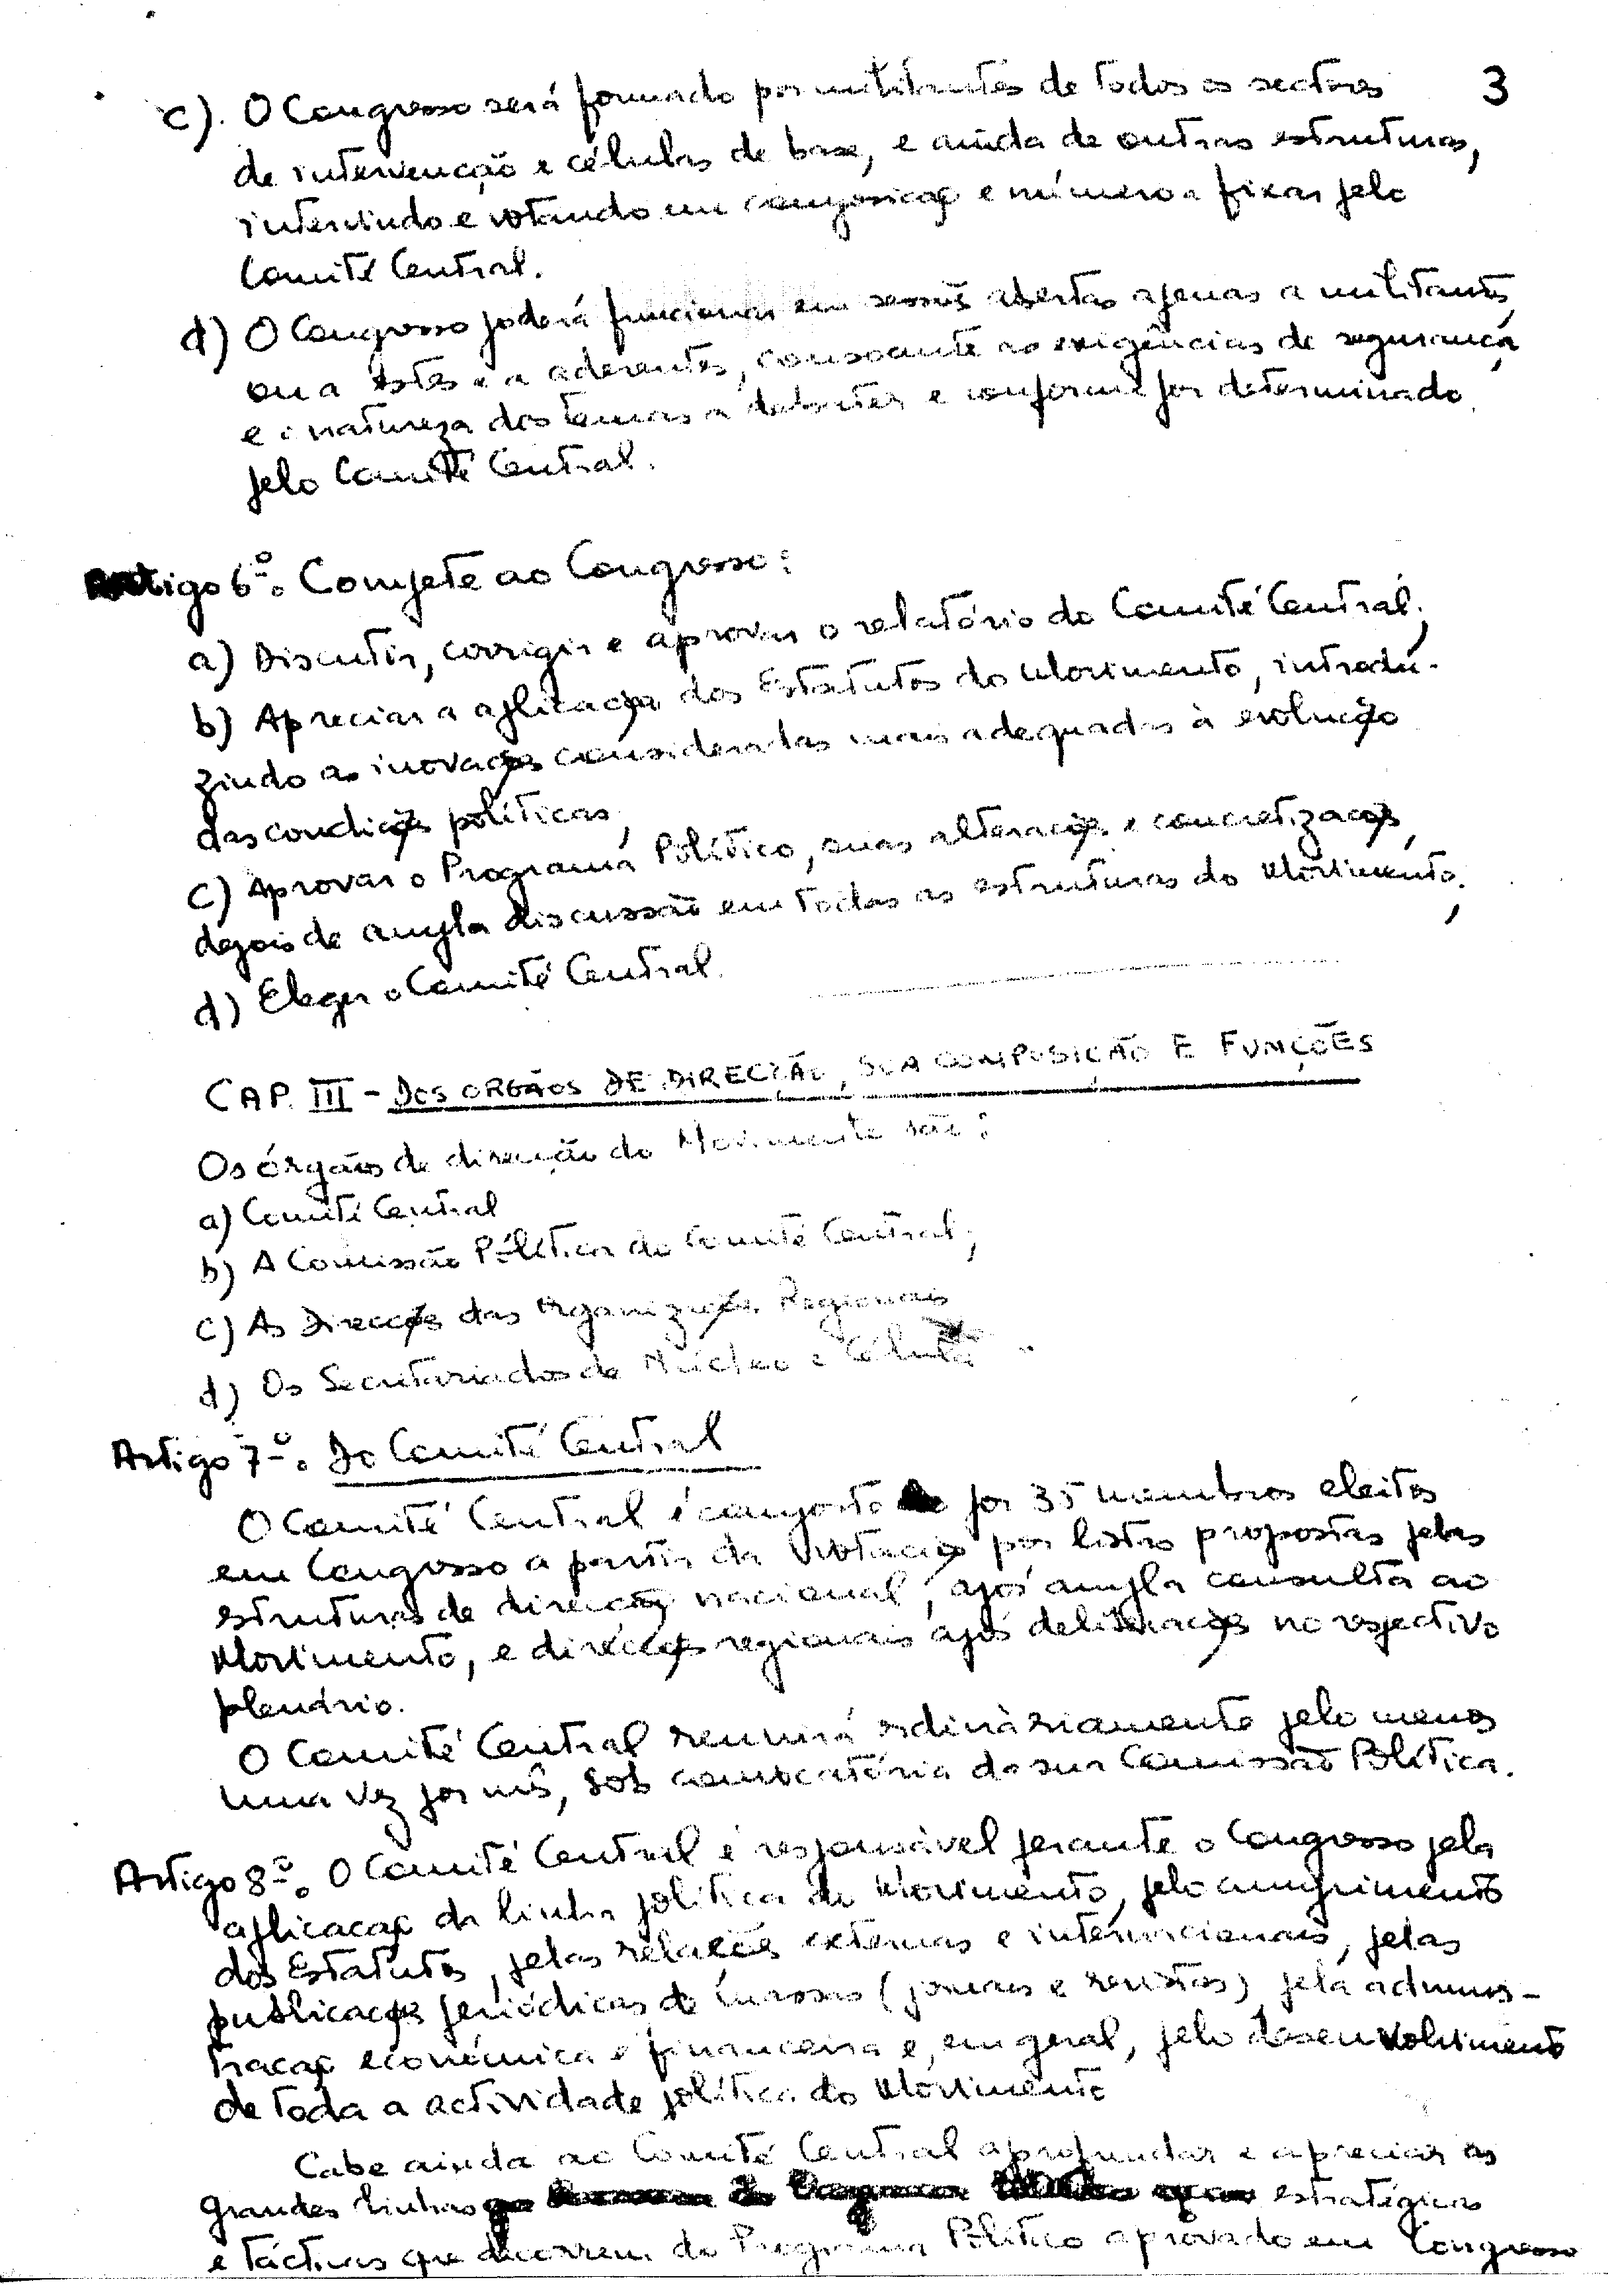 3
c). O Congresso será formado por militantes de todos os sectores
de intervenção e células de base, e ainda de outras estruturas,
intervindo e votando em composição e número a fixar pelo
Comité Central.
d) O Congresso poderá funcionar em sessões abertas apenas a militantes,
ou a estes e a aderentes, consoante as exigências de segurança
e a natureza dos temas a debater e conforme for determinado
pelo Comité Central.
Artigo 6º. Compete ao Congresso:
a) Discutir, corrigir e aprovar o relatório do Comité Central;
b) Apreciar a aplicação dos Estatutos do Movimento, introdu-
zindo as inovações consideradas mais adequadas à evolução
das condições políticas;
c) Aprovar o Programa Político, suas alterações e concretizações,
depois de ampla discussão em todas as estruturas do Movimento;
d) Eleger o Comité Central.
CAP. III - DOS ORGÃOS DE DIRECÇÃO, SUA COMPOSIÇÃO E FUNÇÕES
Os órgãos de direcção do Movimento são:
a) Comité Central
b) A Comissão Política do Comité Central;
c) As Direcções das Organizações Regionais
d) Os Secretariados de Núcleo e Célula
Artigo 7º. Do Comité Central
O Comité Central é composto por 35 membros eleitos
em Congresso a partir da votação por listas propostas pelas
estruturas de direcção nacional, após ampla consulta ao
Movimento, e direcções regionais após deliberações no respectivo
plenário.
O Comité Central reunirá ordináriamente pelo menos
uma vez por mês, sob convocatória da sua Comissão Política.
Artigo 8º. O Comité Central é responsável perante o Congresso pela
aplicação da linha política do Movimento, pelo cumprimento
dos Estatutos, pelas relações externas e internacionais, pelas
publicações periódicas de massas (jornais e revistas) pela adminis-
tração económica e financeira e, em geral, pelo desenvolvimento
de toda a actividade política do Movimento
Cabe ainda ao Comité Central aprofundar e apreciar as
grandes linhas estratégicas
e tácticas que decorrem do Programa Político aprovado em Congresso